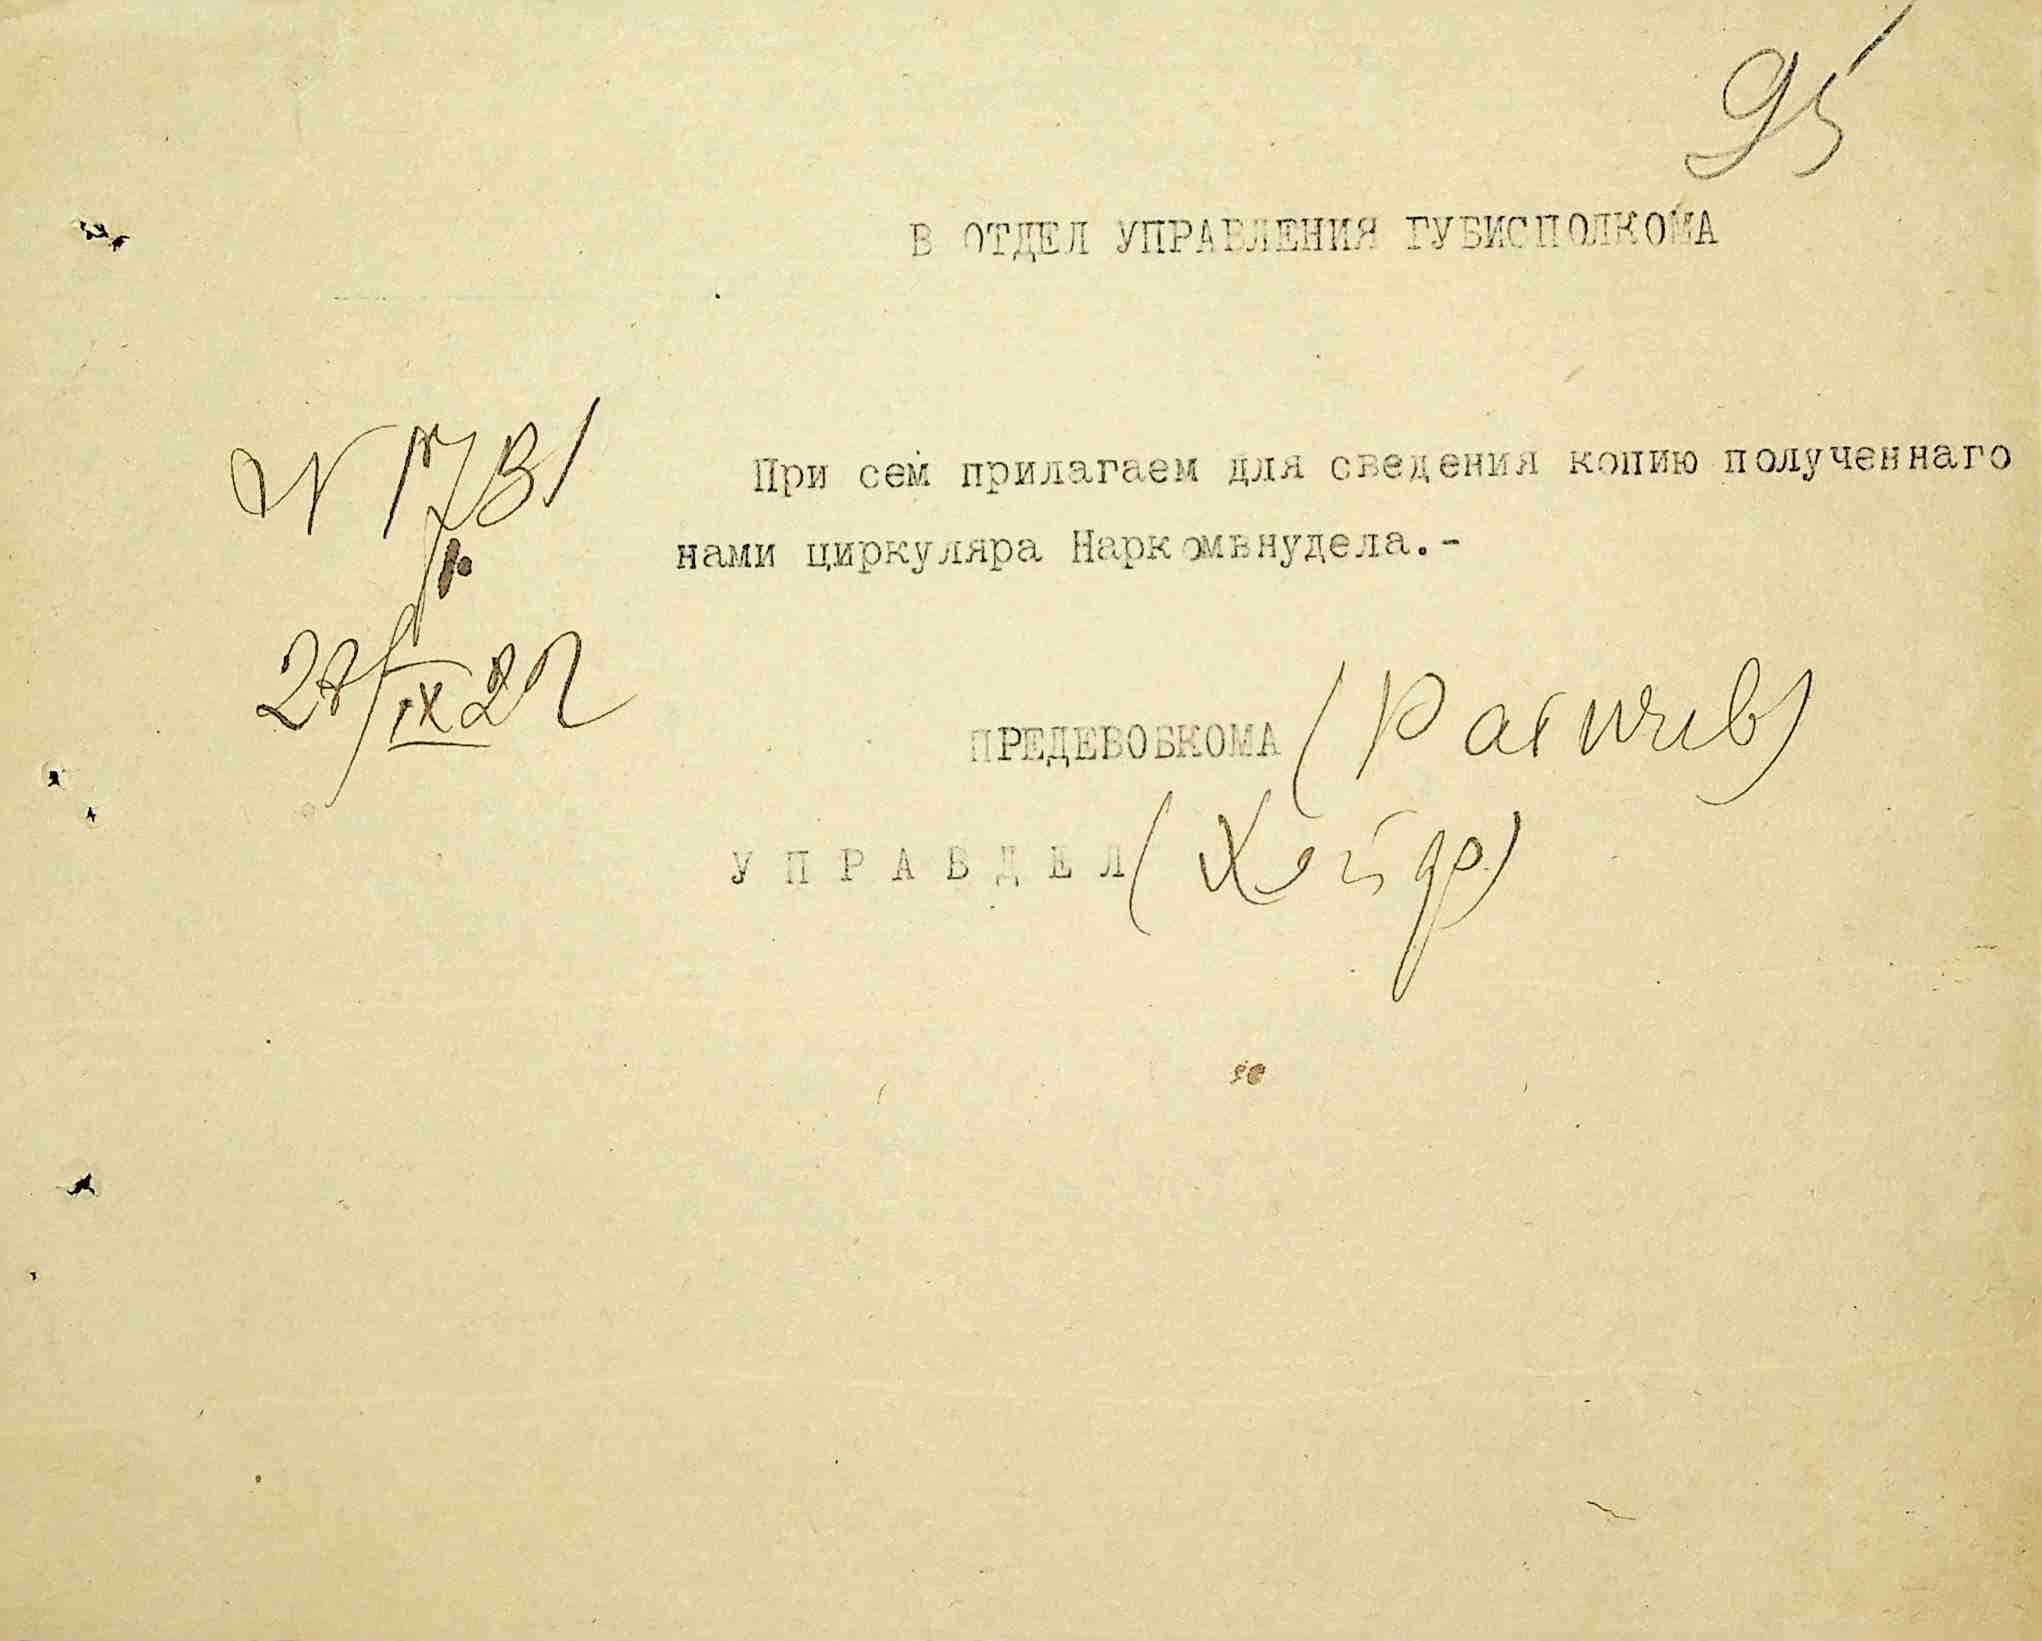 95
В ОТДЕЛ УПРАВЛЕНИЯ ГУБИСПОЛКОМА
При сем прилагаем для сведения копию полученнаго
нами циркуляра Наркомвнудела.-
№ 1731
28/IX 22
ПРЕДЕВОБКОМА
УПРАВДЕЛ